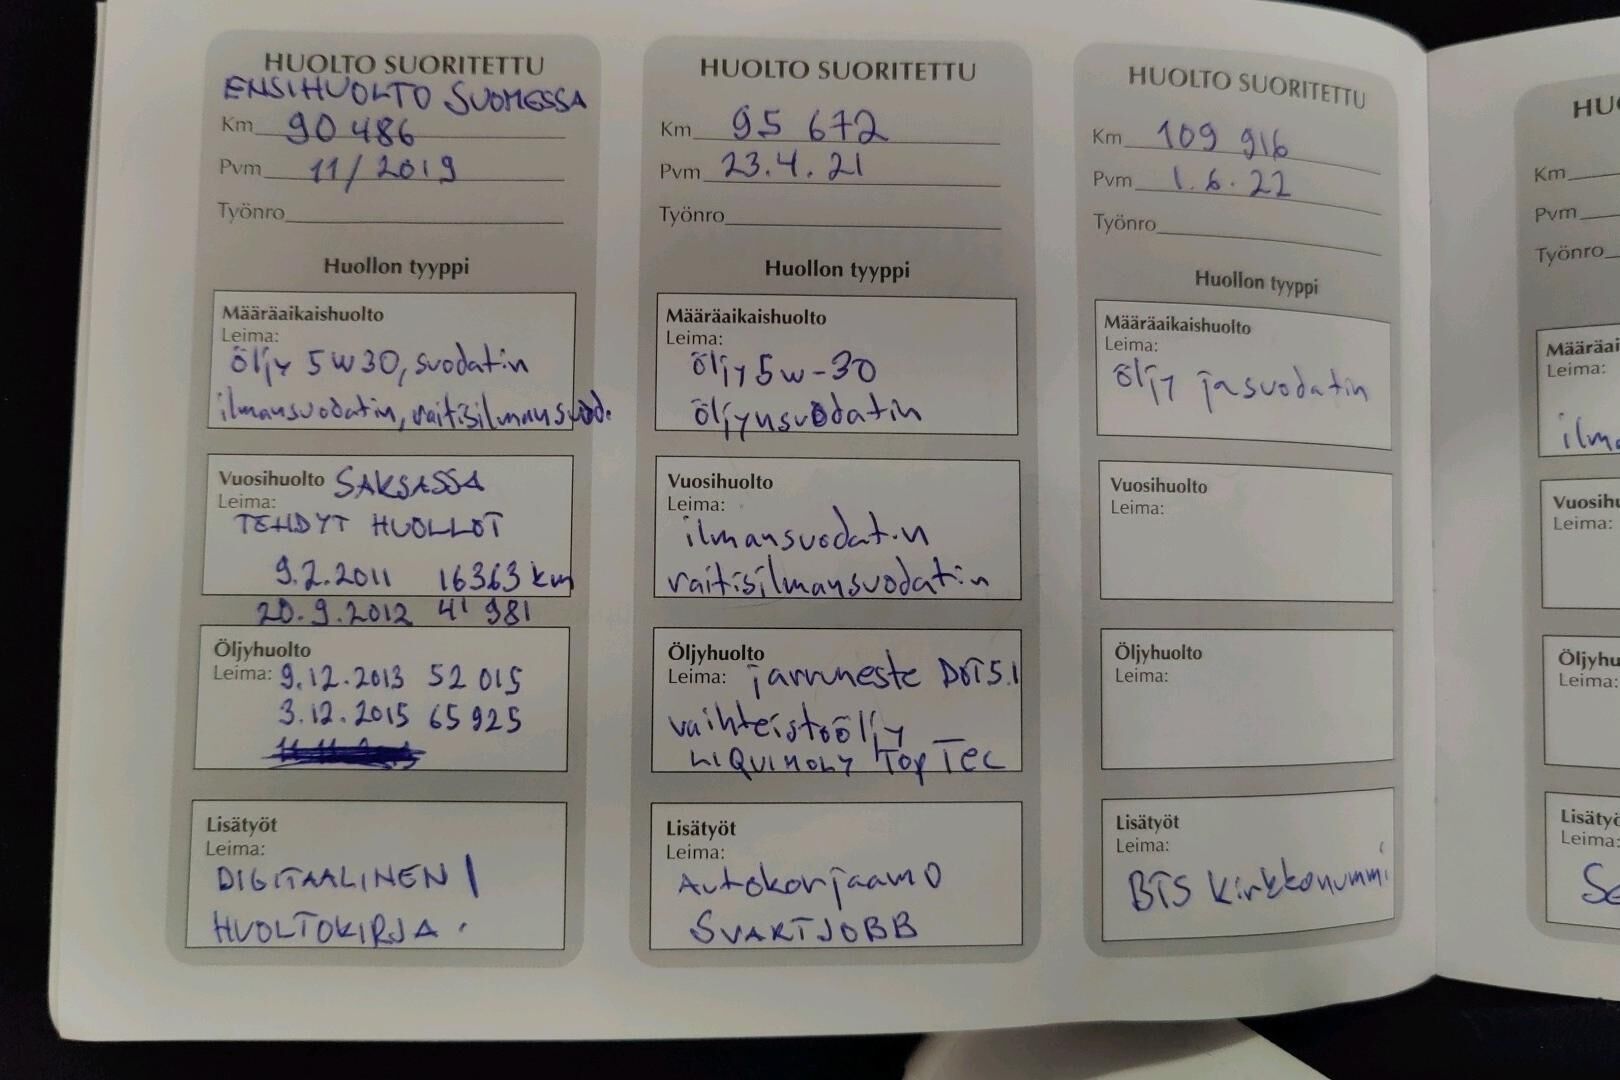 HUOLTO SUORITETTU
ENSIHUOLTO SUOMESSA
Km 90 486
Pvm 11/2019
Työnro
Huollon tyyppi
Määräaikaishuolto
Leima:
öljy 5w30, suodatin
ilmansuodatin, raitisilmansuod.
Vuosihuolto SAKSASSA
Leima:
TEHDYT HUOLLOT
9.2.2011 16363 km
20.9.2012 41 981
Öljyhuolto
Leima: 9.12.2013 52 015
3.12.2015 65 925
Lisätyöt
Leima:
DIGITAALINEN
HUOLTOKIRJA
HUOLTO SUORITETTU
Km 95 672
Pvm 23.4.21
Työnro
Huollon tyyppi
Määräaikaishuolto
Leima:
öljy 5w-30
öljynsuodatin
Vuosihuolto
Leima:
ilmansuodatin
raitisilmansuodatin
Öljyhuolto
Leima: jarruneste DOT5.1
vaihteistoöljy
LIQUIMOLY Top Tec
Lisätyöt
Leima:
Autokorjaamo
SVARTJOBB
HUOLTO SUORITETTU
Km 109 916
Pvm 1.6.22
Työnro
Huollon tyyppi
Määräaikaishuolto
Leima:
öljy ja suodatin
Vuosihuolto
Leima:
Öljyhuolto
Leima:
Lisätyöt
Leima:
BTS Kirkkonummi
HU
Km
Pvm
Työnro
Määräai
Leima:
ilm
Vuosihu
Leima:
Öljyhu
Leima:
Lisätyö
Leima: